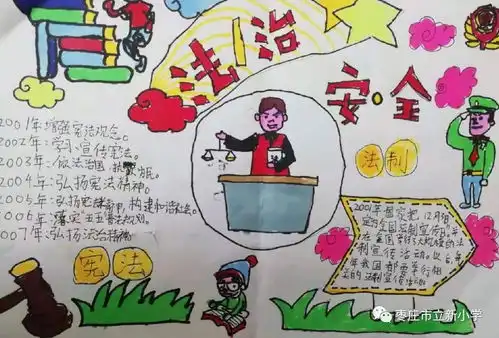 法治
安·全
2001年增强宪法观念。
2002年:学习宣传宪法。
2003年:依法治国 执 为民。
2004年:弘扬宪法精神。
2005年:弘扬宪 精神,构建和谐社会。
2006年:落实五五普法规划。
2007年:弘扬法治精神
法制
2001年国家把12月4日
定为全国法制宣传日,并
在全国举行大规模的法
制宣传活动。以后,每
年我国都要举行相
的法制宣传活动。
宪法
枣庄市立新小学